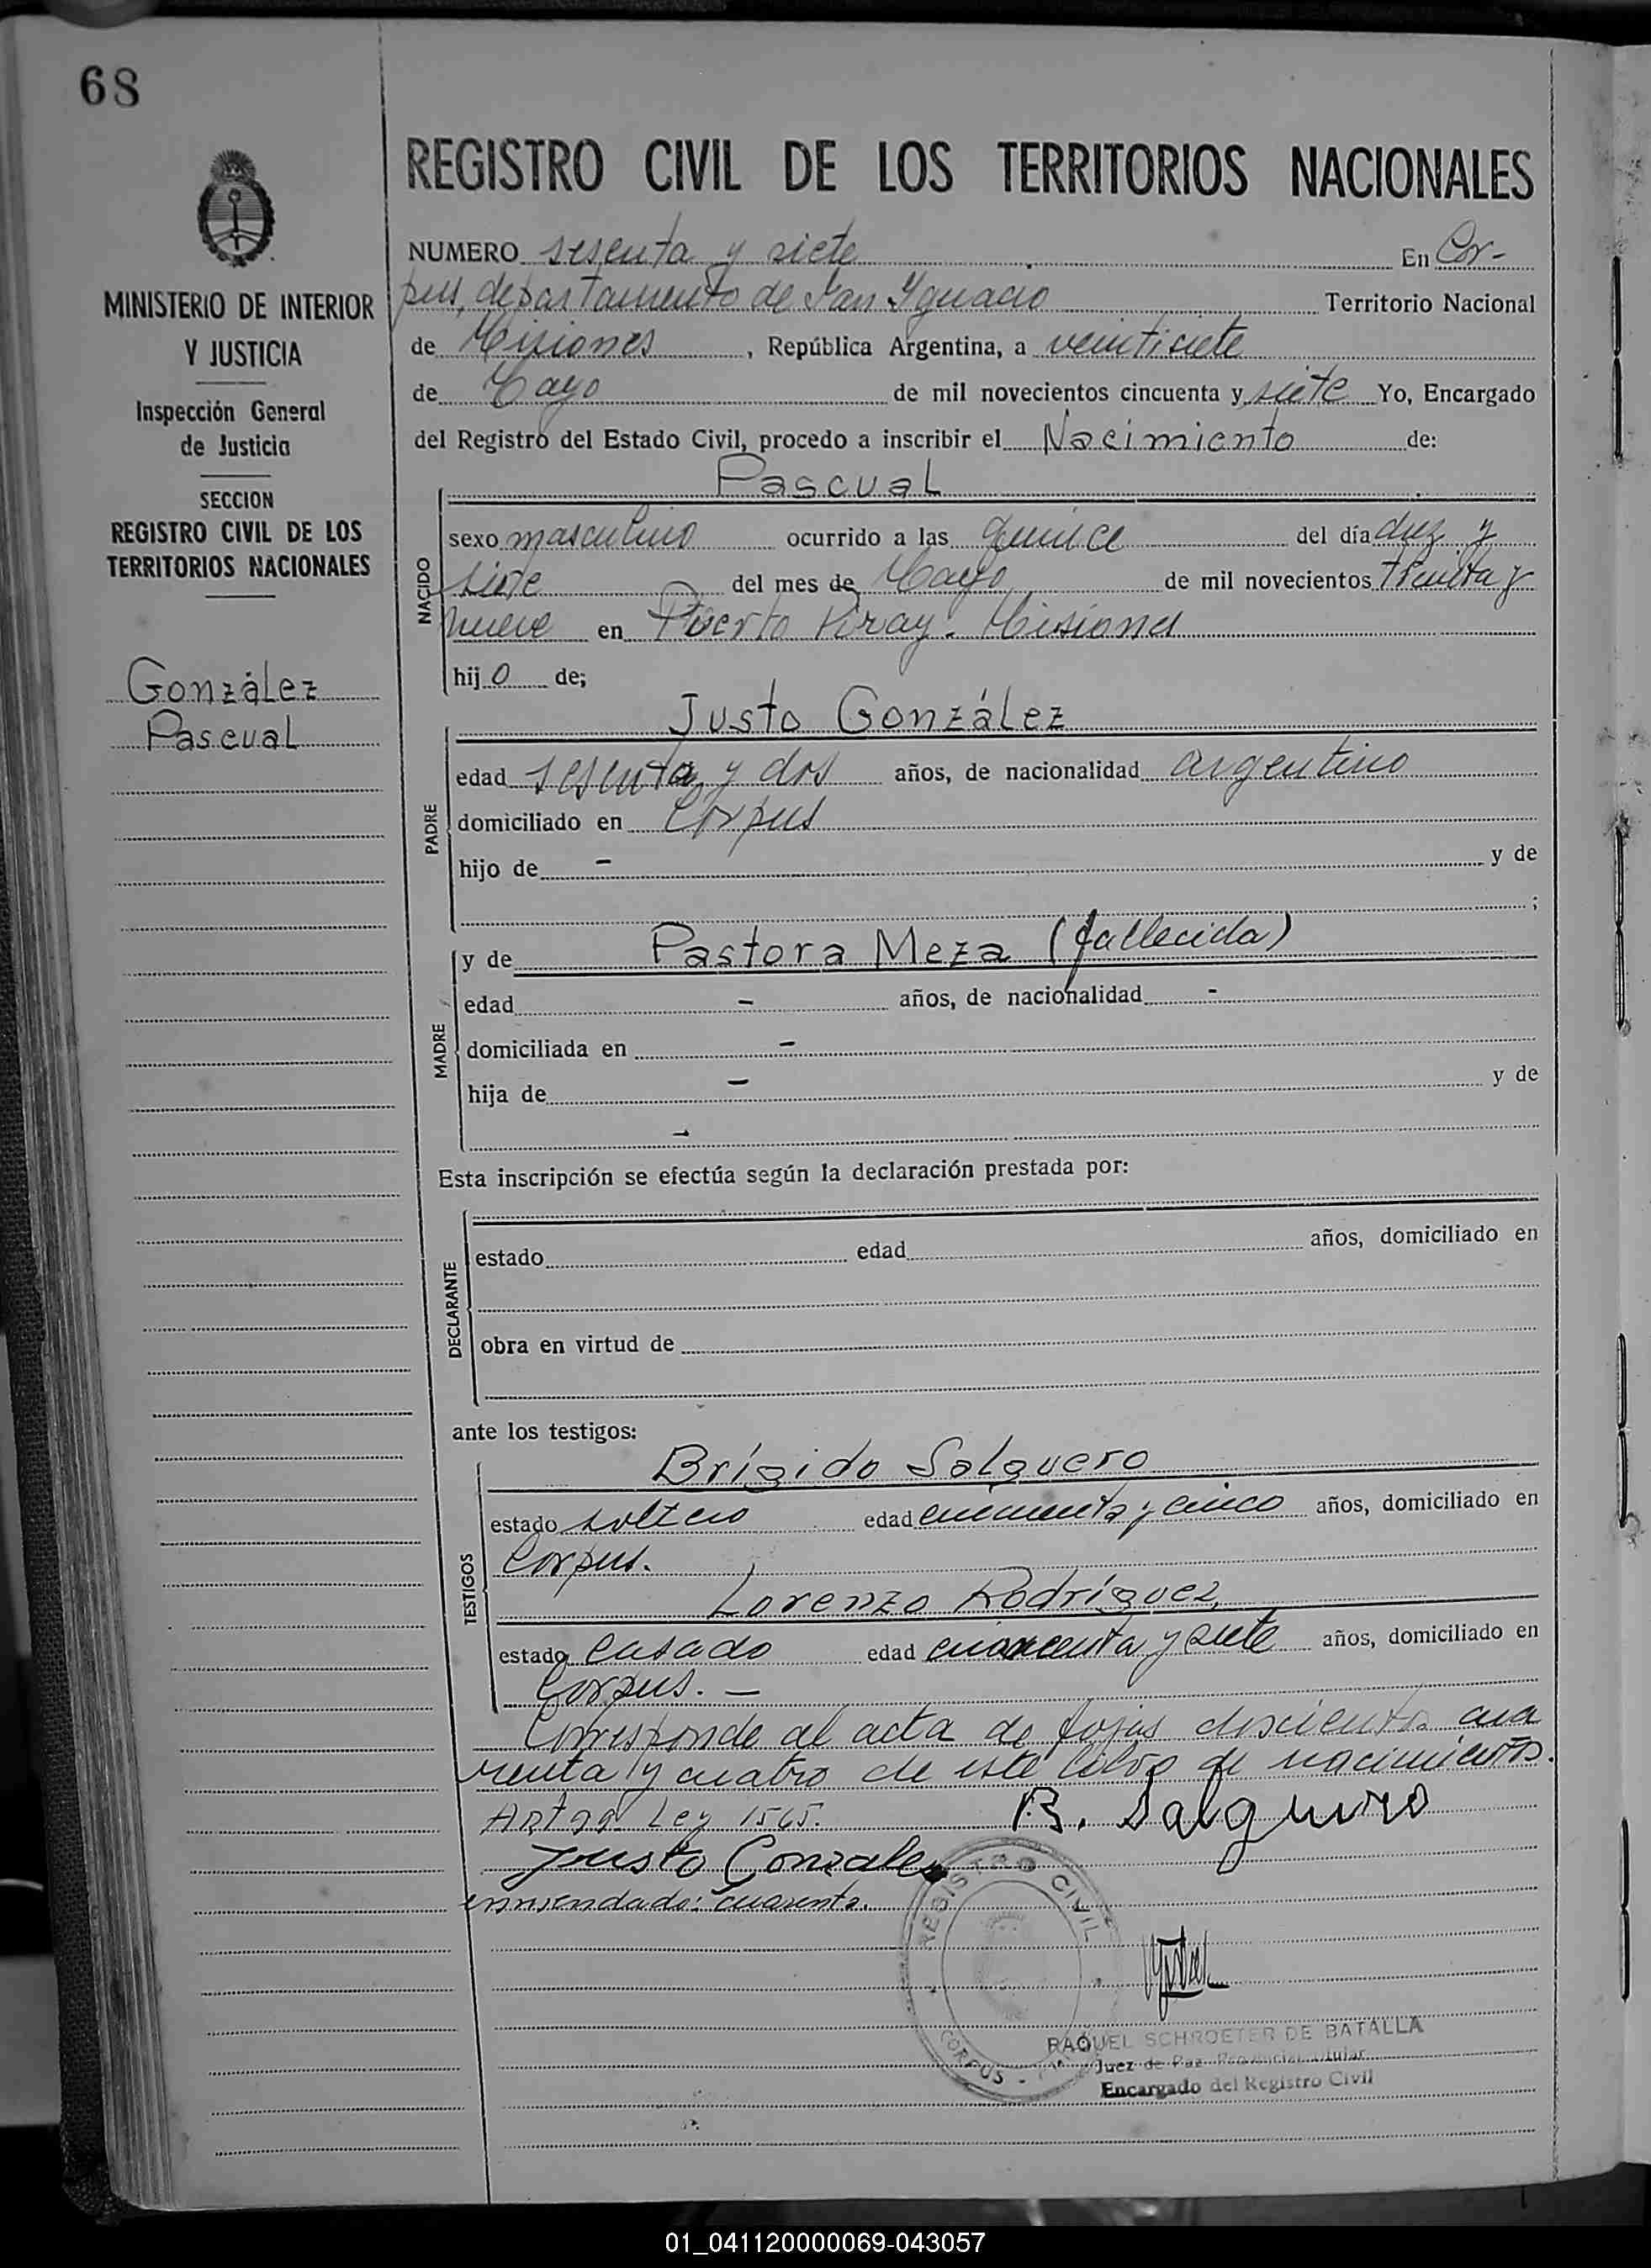 68
REGISTRO CIVIL DE LOS TERRITORIOS NACIONALES
MINISTERIO DE INTERIOR
Y JUSTICIA
Inspección General
de Justicia
SECCION
REGISTRO CIVIL DE LOS
TERRITORIOS NACIONALES
González
Pascual
NUMERO sesenta y siete En Cor-
pus, departamento de San Ygnacio Territorio Nacional
de Misiones, República Argentina, a veintisiete
de Mayo de mil novecientos cincuenta y siete Yo, Encargado
del Registro del Estado Civil, procedo a inscribir el Nacimiento de:
Pascual
NACIDO
sexo masculino ocurrido a las quince del día diez y
siete del mes de Mayo de mil novecientos treinta y
nueve en Puerto Piray. Misiones
hijo de;
Justo González
PADRE
edad sesenta y dos años, de nacionalidad argentino
domiciliado en Corpus
hijo de - y de
;
MADRE
y de Pastora Meza (fallecida)
edad - años, de nacionalidad -
domiciliada en -
hija de - y de
-
Esta inscripción se efectúa según la declaración prestada por:
DECLARANTE
estado edad años, domiciliado en
obra en virtud de
ante los testigos:
TESTIGOS
Brígido Salguero
estado soltero edad cincuenta y cinco años, domiciliado en
Corpus.
Lorenzo Rodríguez,
estado casado edad cuarenta y siete años, domiciliado en
Corpus. —
Corresponde al acta de fojas doscientos cua
renta y cuatro de este libro de nacimientos.
Ley 1565. B. Salguero
Justo Gonzalez
enmendado: cuarenta.
REGISTRO CIVIL
CORPUS
RAQUEL SCHROETER DE BATALLA
Juez de Paz Provincial titular
Encargado del Registro Civil
01_041120000069-043057